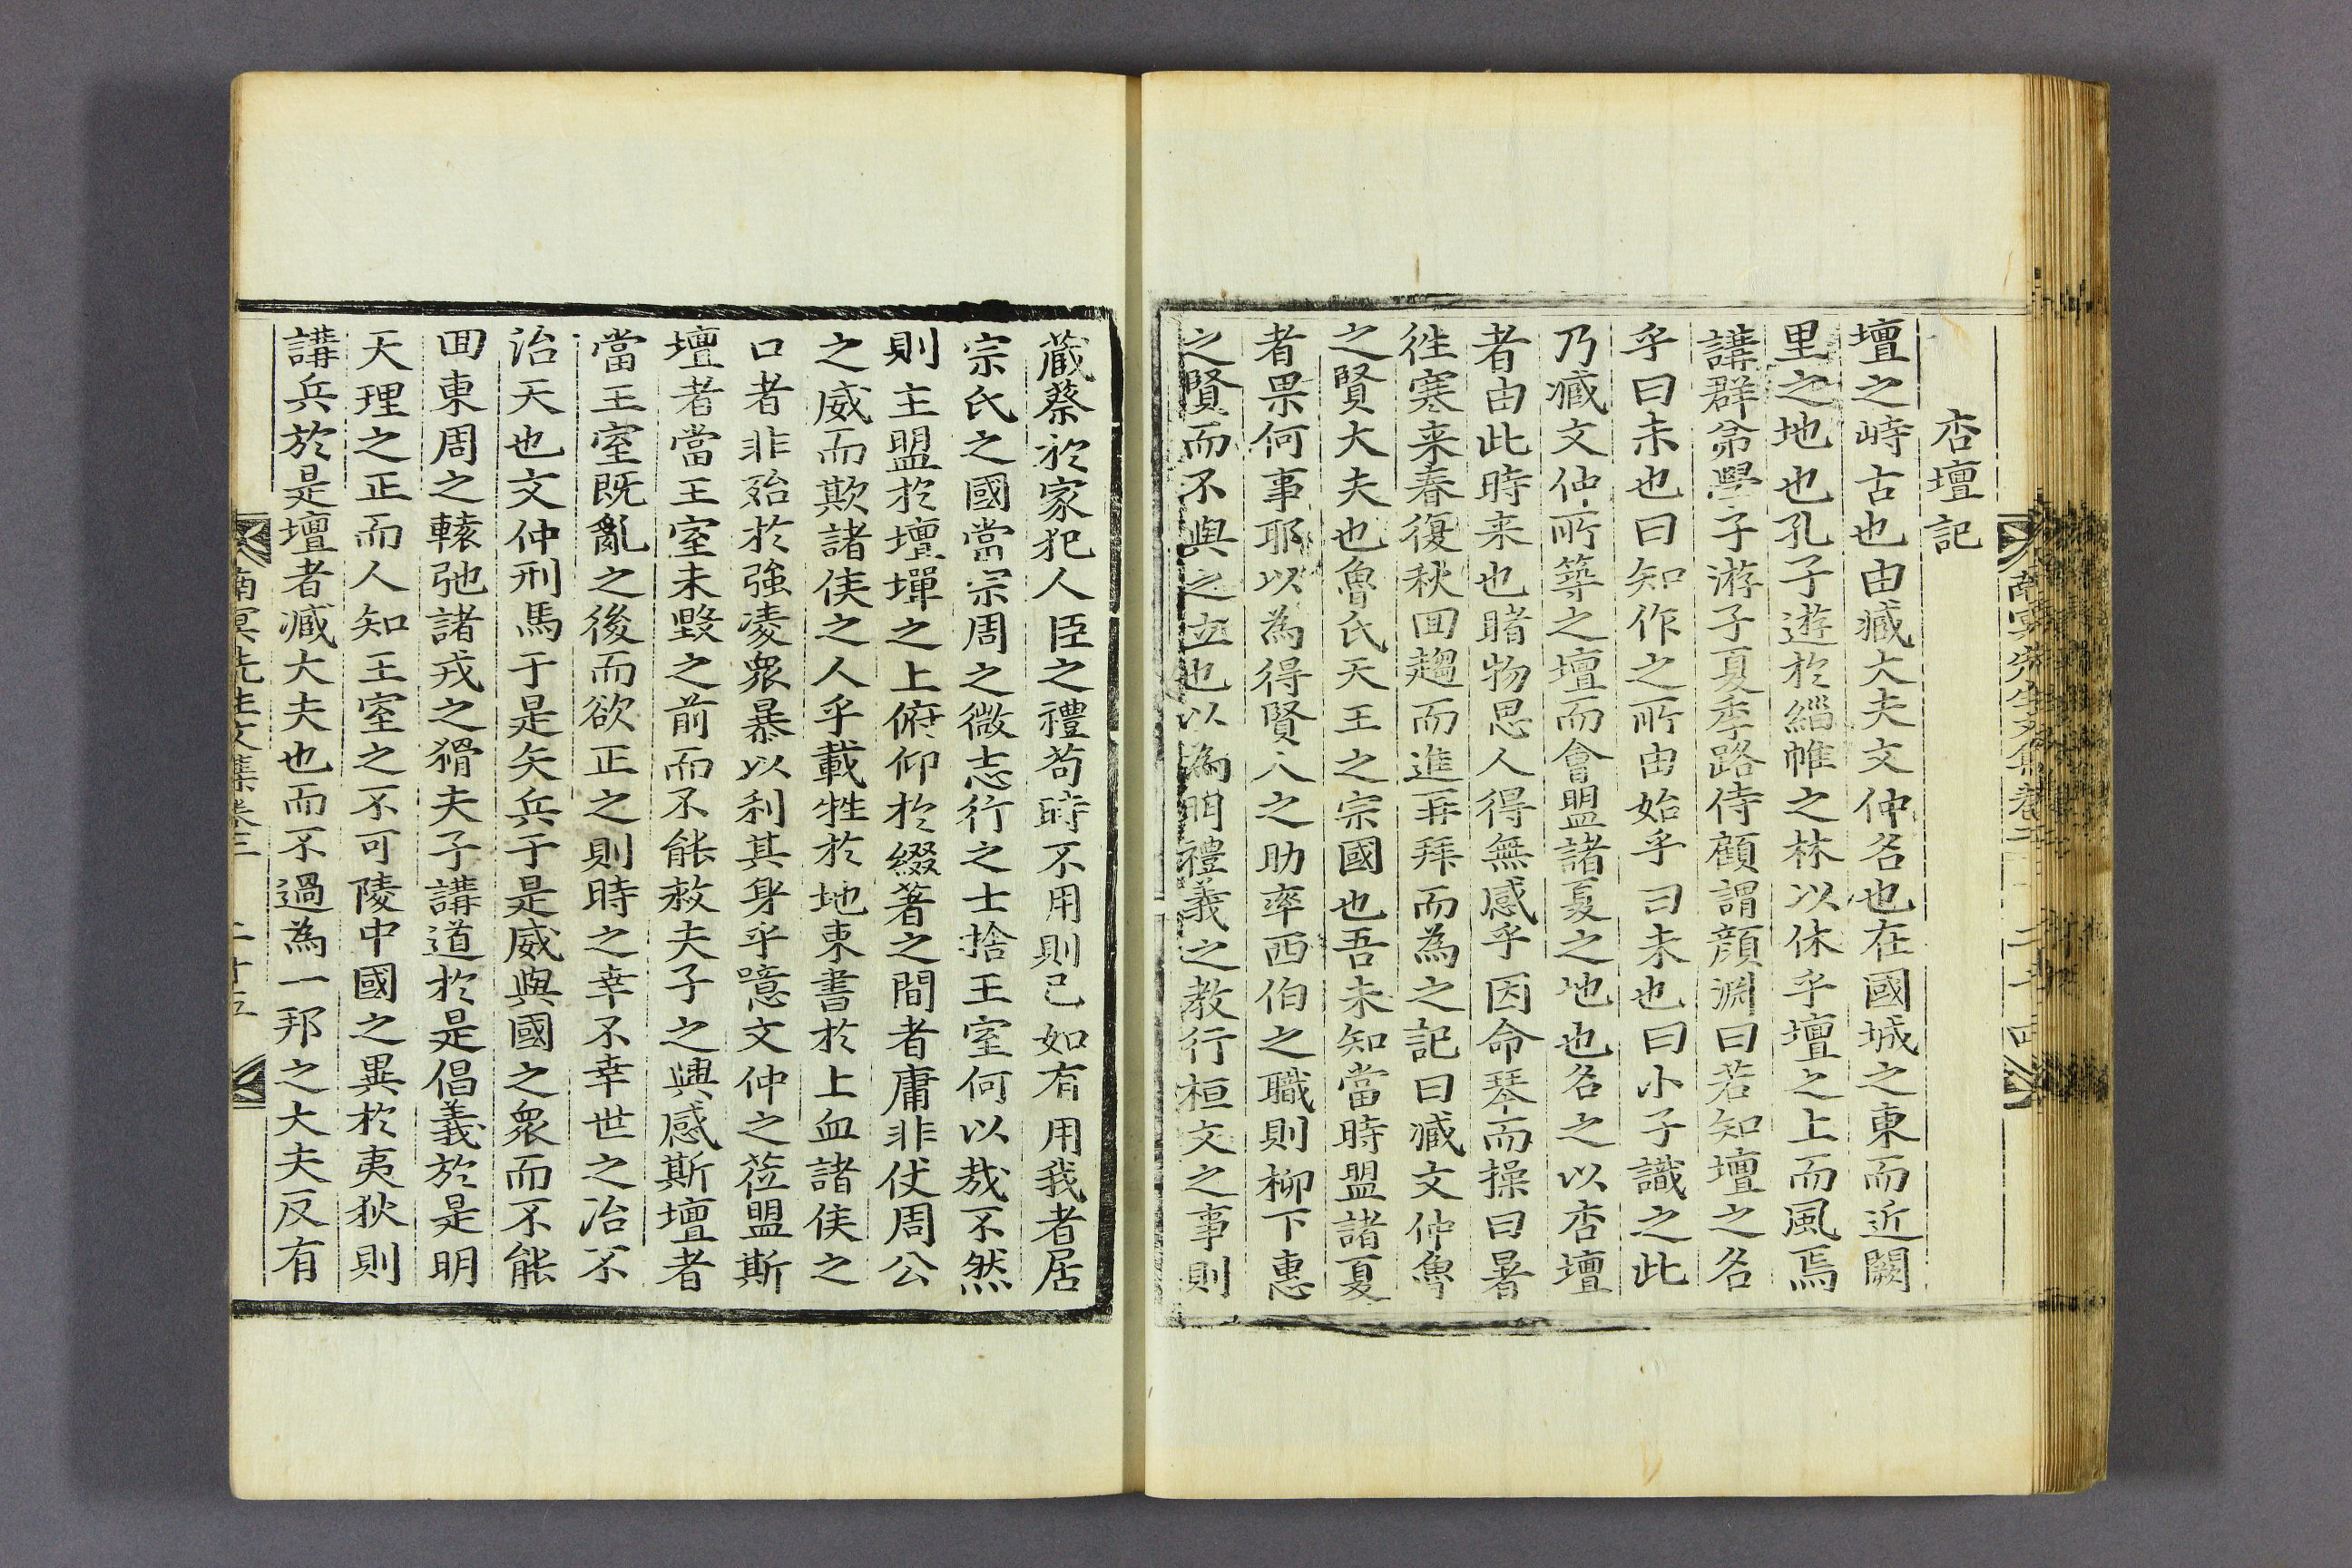 南冥先生文集卷二 二十四
杏壇記
壇之峙古也由臧大夫文仲名也在國城之東而近闕
里之地也孔子遊於緇帷之林以休乎壇之上而風焉
講群弟學子游子夏季路侍顧謂顔淵曰若知壇之名
乎曰未也曰知作之所由始乎曰未也曰小子識之此
乃臧文仲所築之壇而會盟諸夏之地也名之以杏壇
者由此時来也睹物思人得無感乎因命琴而操曰暑
徃寒来春復秋囬趨而進再拜而為之記曰臧文仲魯
之賢大夫也魯氏天王之宗國也吾未知當時盟諸夏
者果何事耶以為得賢人之助率西伯之職則柳下惠
之賢而不與之立也以為明禮義之教行桓文之事則
蔵蔡於家犯人臣之禮苟時不用則已如有用我者居
宗氏之國當宗周之微志行之士捨王室何以㢤不然
則主盟於壇墠之上俯仰於綴著之間者庸非伏周公
之威而欺諸侯之人乎載牲於地束書於上血諸侯之
口者非殆於強凌衆暴以利其身乎噫文仲之莅盟斯
壇者當王室未毀之前而不能救夫子之興感斯壇者
當王室既亂之後而欲正之則時之幸不幸世之治不
治天也文仲刑馬于是矢兵于是威與國之衆而不能
囬東周之轅弛諸戎之猾夫子講道於是倡義於是明
天理之正而人知王室之不可陵中國之異於夷狄則
講兵於是壇者臧大夫也而不過為一邦之大夫反有
南冥先生文集卷三 二十五